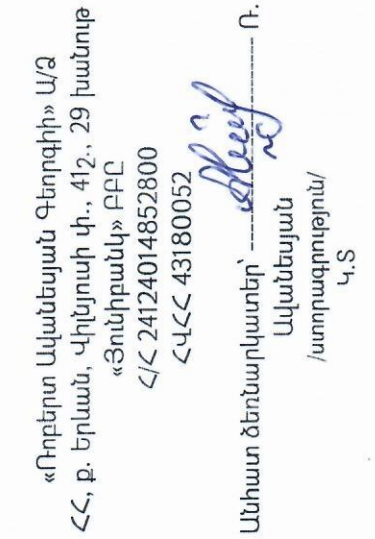 «Ռոբերտ Ավանեսյան Գեորգիի» Ա/Ձ
ՀՀ, ք. Երևան, Վիլնյուսի փ., 41շ., 29 խանութ
«Յունիբանկ» ԲԲԸ
Հ/Հ 24124014852800
ՀՎՀՀ 43180052
Անհատ ձեռնարկատեր՝ -------------------- Ռ.
Ավանեսյան
/ստորագրություն/
Կ.Տ